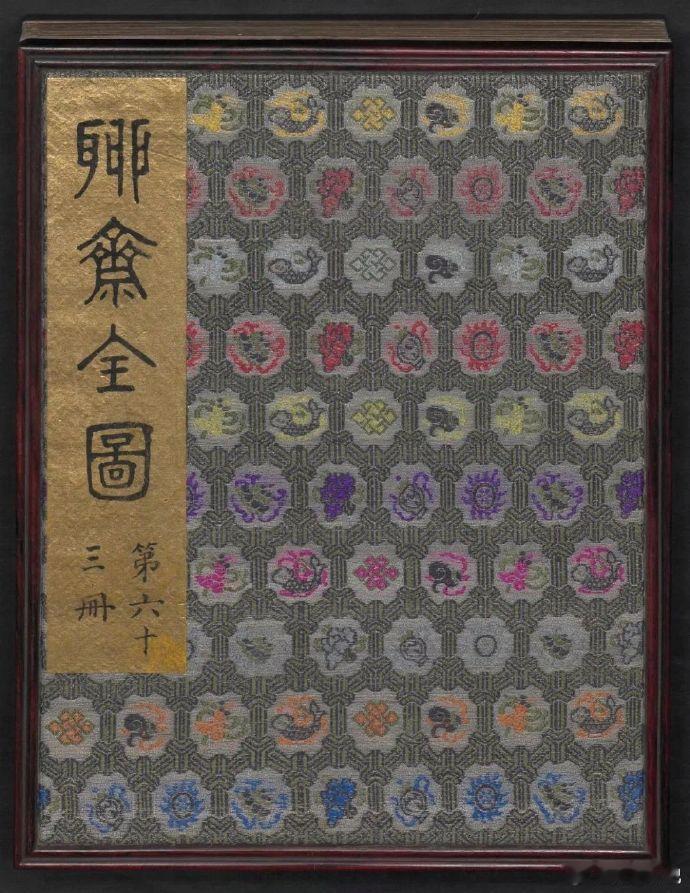 聊齋全圖
第六十
三冊